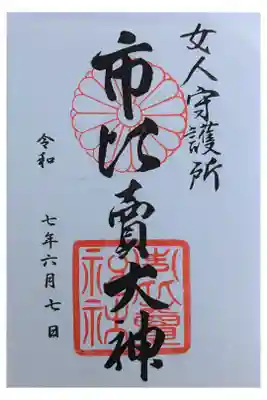 女人守護所
市比賣大神
令和
七年六月七日